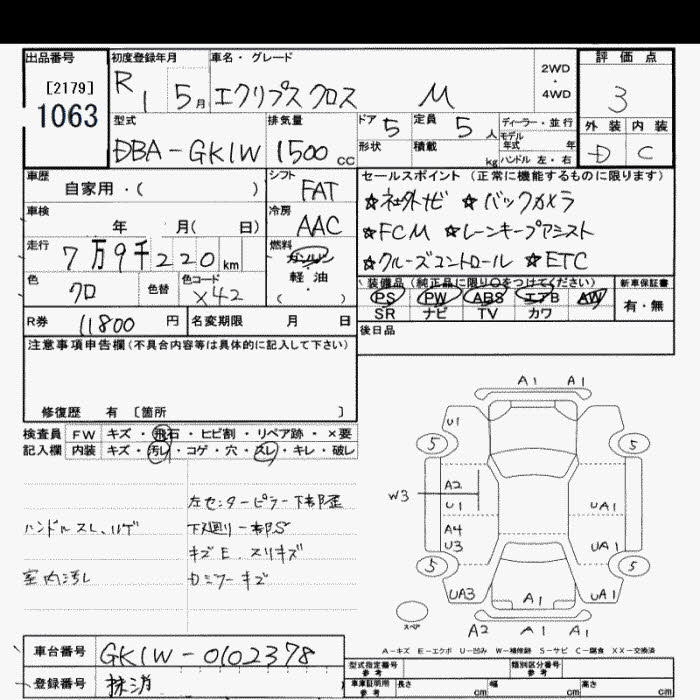 出品番号
[2179]
1063
初度登録年月
R 1 5月
車名・グレード
エクリプスクロス M
2WD
・
4WD
評価点
3
外装 内装
D C
型式
DBA-GK1W
排気量
1500 CC
ドア 5
定員 5人
形状
積載 kg
ディーラー・並行
モデル年式 年
ハンドル 左・右
車歴
自家用・( )
シフト
FAT
車検
年 月( 日)
冷房
AAC
走行
7万9千220km
燃料
ガソリン
軽油
( )
色
クロ
色替
色コード
X42
セールスポイント (正常に機能するものに限ります)
☆社外ナビ ☆バックカメラ
☆FCM ☆レーンキープアシスト
☆クルーズコントロール ☆ETC
装備品 (純正品に限り○をつけてください)
PS PW ABS エアB AW
SR ナビ TV カワ
新車保証書
有・無
R券 11800 円
名変期限 月 日
後日品
注意事項申告欄(不具合内容等は具体的に記入して下さい)
修復歴 有 〔箇所 〕
検査員記入欄
FW キズ・飛石・ヒビ割・リペア跡・×要
内装 キズ・汚レ・コゲ・穴・スレ・キレ・破レ
左センターピラー下部歪
ハンドルスレ、ハゲ
下廻り一部S
キズE スリキズ
室内汚レ
Dミラーキズ
A1 A1
U1
5 5
W3
A2
U1
UA1
A4
U3
UA1
5 5
UA3
A1
UA1
スペア
A2 A1 A1
A-キズ E-エクボ U-凹み W-補修跡 S-サビ C-腐食 XX-交換済
車台番号 GK1W-0102378
登録番号 抹消
型式指定番号 参考
類別区分番号 参考
車庫証明用 参考
長さ cm 幅 cm 高さ cm